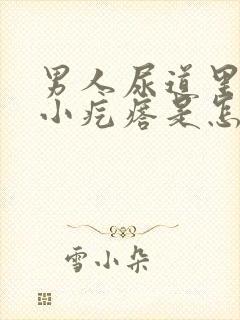 男人尿道里
小疙瘩是怎
雪小朵